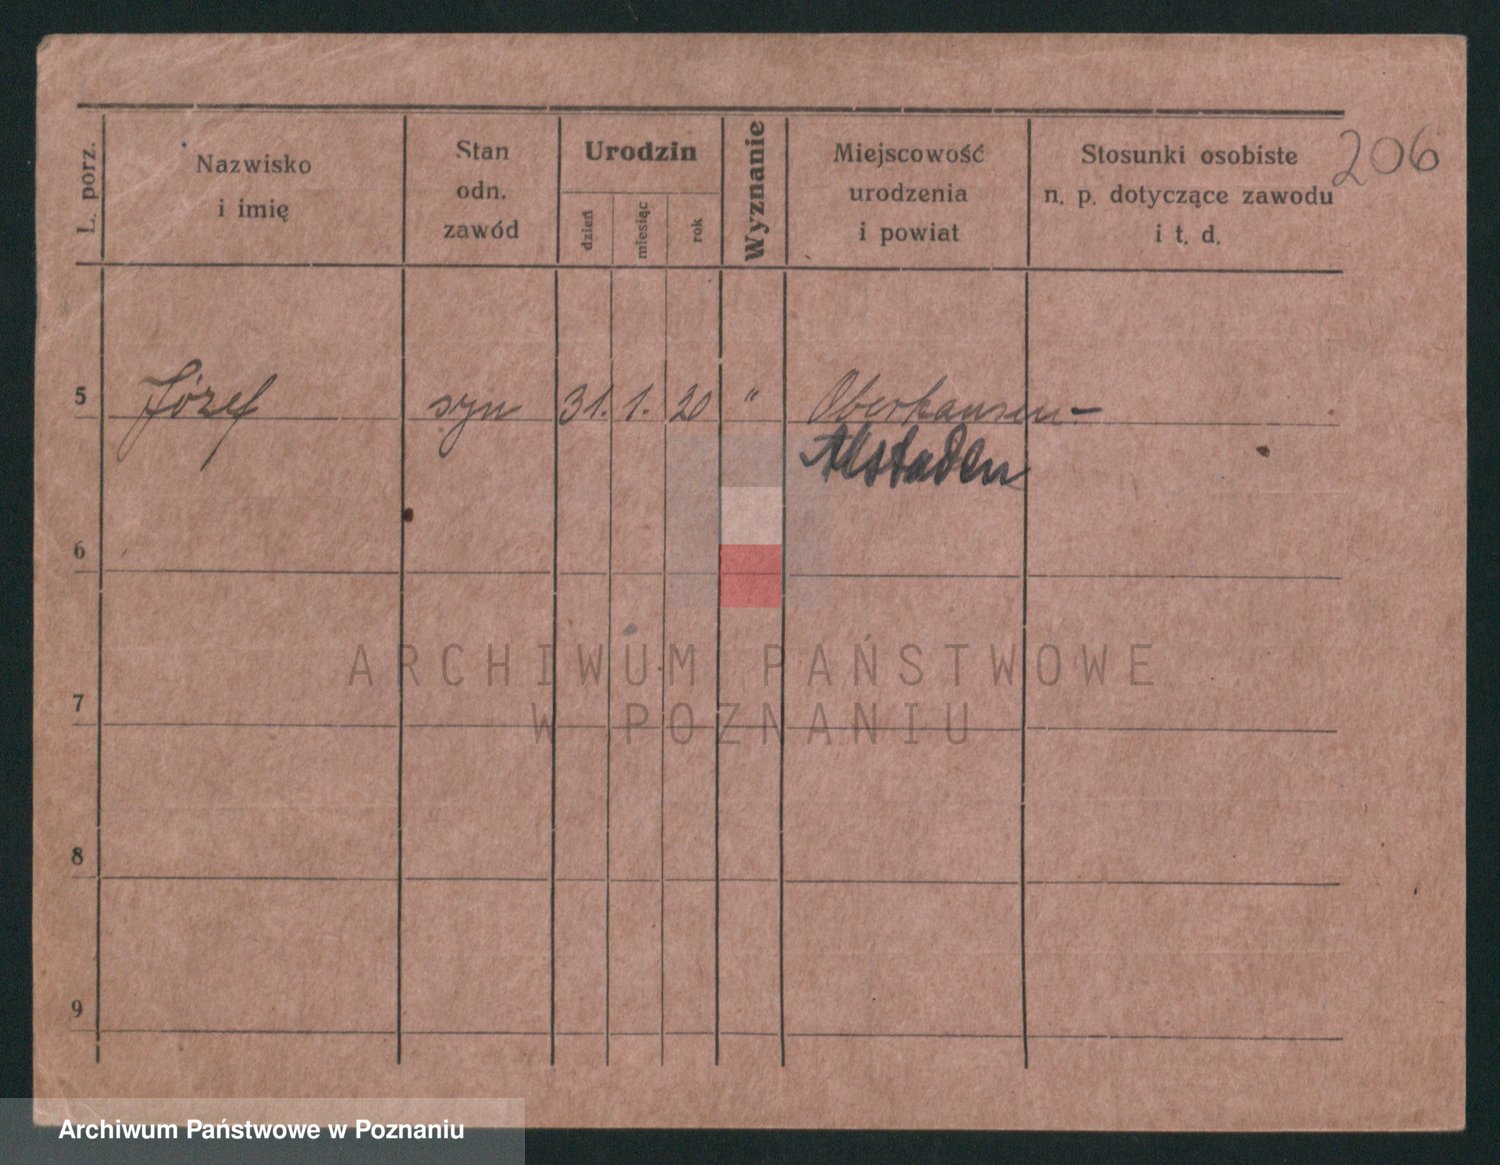 206
L. porz.
Nazwisko
i imię
Stan
odn.
zawód
Urodzin
dzień
miesiąc
rok
Wyznanie
Miejscowość
urodzenia
i powiat
Stosunki osobiste
n. p. dotyczące zawodu
i t. d.
5 Józef syn 31. 1. 20 " Oberhausen-
Alstaden
6
7
8
9
ARCHIWUM PAŃSTWOWE
W POZNANIU
Archiwum Państwowe w Poznaniu